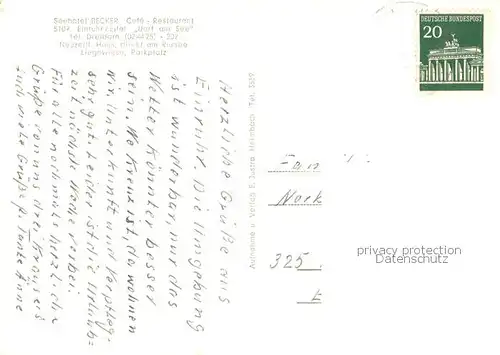 Seehotel BECKER, Café - Restaurant
5109 Einruhr/Eifel „Dorf am See"
Tel. Dreiborn (029425) - 202
Neuzeitl. Haus, direkt am Wasser
Liegewiese, Parkplatz
Herzliche Grüße aus
Einruhr. Die Umgebung
ist wunderbar, nur das
Wetter könnte besser
sein. Wo Kreuz ist, da wohnen
wir. Unterkunft und Verpfleg-
sehr gut. Leider ist die Urlaub-
zeit nächste Woche vorbei.
Für alle nochmals herzliche
Grüße von uns drei
auch viele Grüße f. Tante Änne
Aufnahme u. Verlag B. Justre Heimbach Tel. 3619
DEUTSCHE BUNDESPOST
20
325
privacy protection
Datenschutz